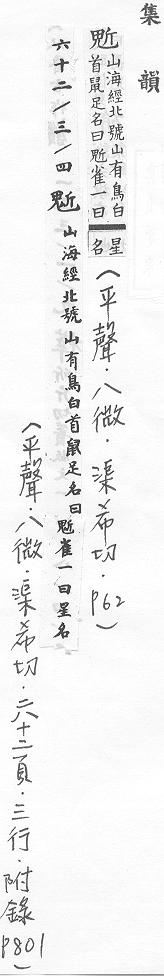 集韻
鬿山海經北號山有鳥白
首鼠足名曰鬿雀一曰星
名
(平聲.八微.渠希切.P62)
六十二/三/四 鬿 山海經北號山有鳥白首鼠足名曰鬿雀一曰星名
(平聲.八微.渠希切.六十二頁.三行.附錄P801)